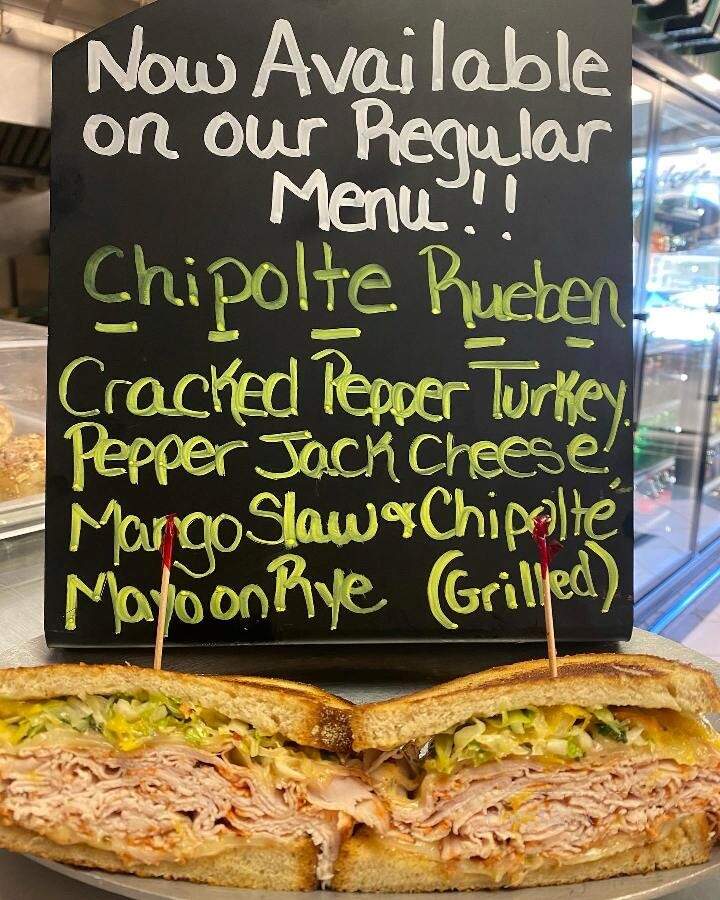 Now Available
on our Regular
Menu!!
Chipolte Rueben
Cracked Pepper Turkey,
Pepper Jack Cheese,
Mango Slaw & Chipolte
Mayo on Rye (Grilled)